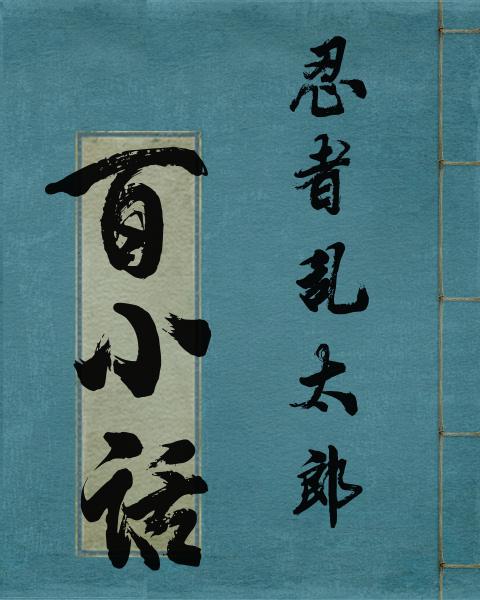 忍者乱太郎
百小話